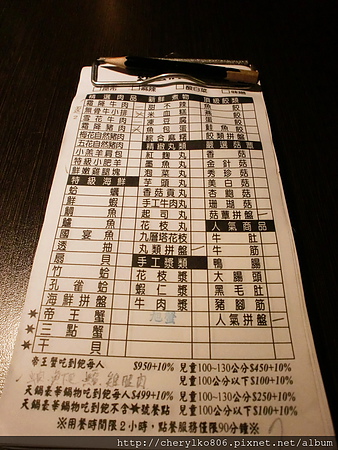 精選肉品 新鮮煮物 頂級餃類
霜降牛肉 甜不辣 燕餃
無骨牛小排 米血 蝦餃
雪花牛肉 凍豆腐 魚餃
霜降豬肉 魚包蛋
梅花自然豬肉 綜合 餃類拼盤
五花自然豬肉 精緻丸類 嚴選菇蕈
小羔羊肩包 紅麴丸 香菇
特級小肥羊 墨魚丸 金針菇
鮮嫩雞腿塊 泡菜丸 秀珍菇
特級海鮮 芋頭丸 美白菇
蛤蠣 香菇貢丸 杏鮑菇
鮮蚵 手工牛肉丸 珊瑚菇
鯛魚 起司丸 菇蕈拼盤
鱸魚 花枝丸 人氣商品
國宴魚 九層塔花枝 牛肚
透抽 丸類拼盤 牛筋
扇貝 手工漿類 鴨腸
竹蛤 花枝漿 大腸頭
孔雀蛤 蝦仁漿 黑毛肚
海鮮拼盤 牛肉漿 豬腳筋
★帝王蟹 人氣拼盤
★三點蟹
★干貝
帝王蟹吃到飽每人 $950+10% 兒童100~130公分$450+10%
兒童100公分以下$100+10%
天鍋豪華鍋物吃到飽每人$499+10% 兒童100~130公分$250+10%
天鍋豪華鍋物吃到飽不含★號餐點 兒童100公分以下$100+10%
※用餐時間限2小時，點餐服務僅限90分鐘※
http://cherylko806.pixnet.net/album